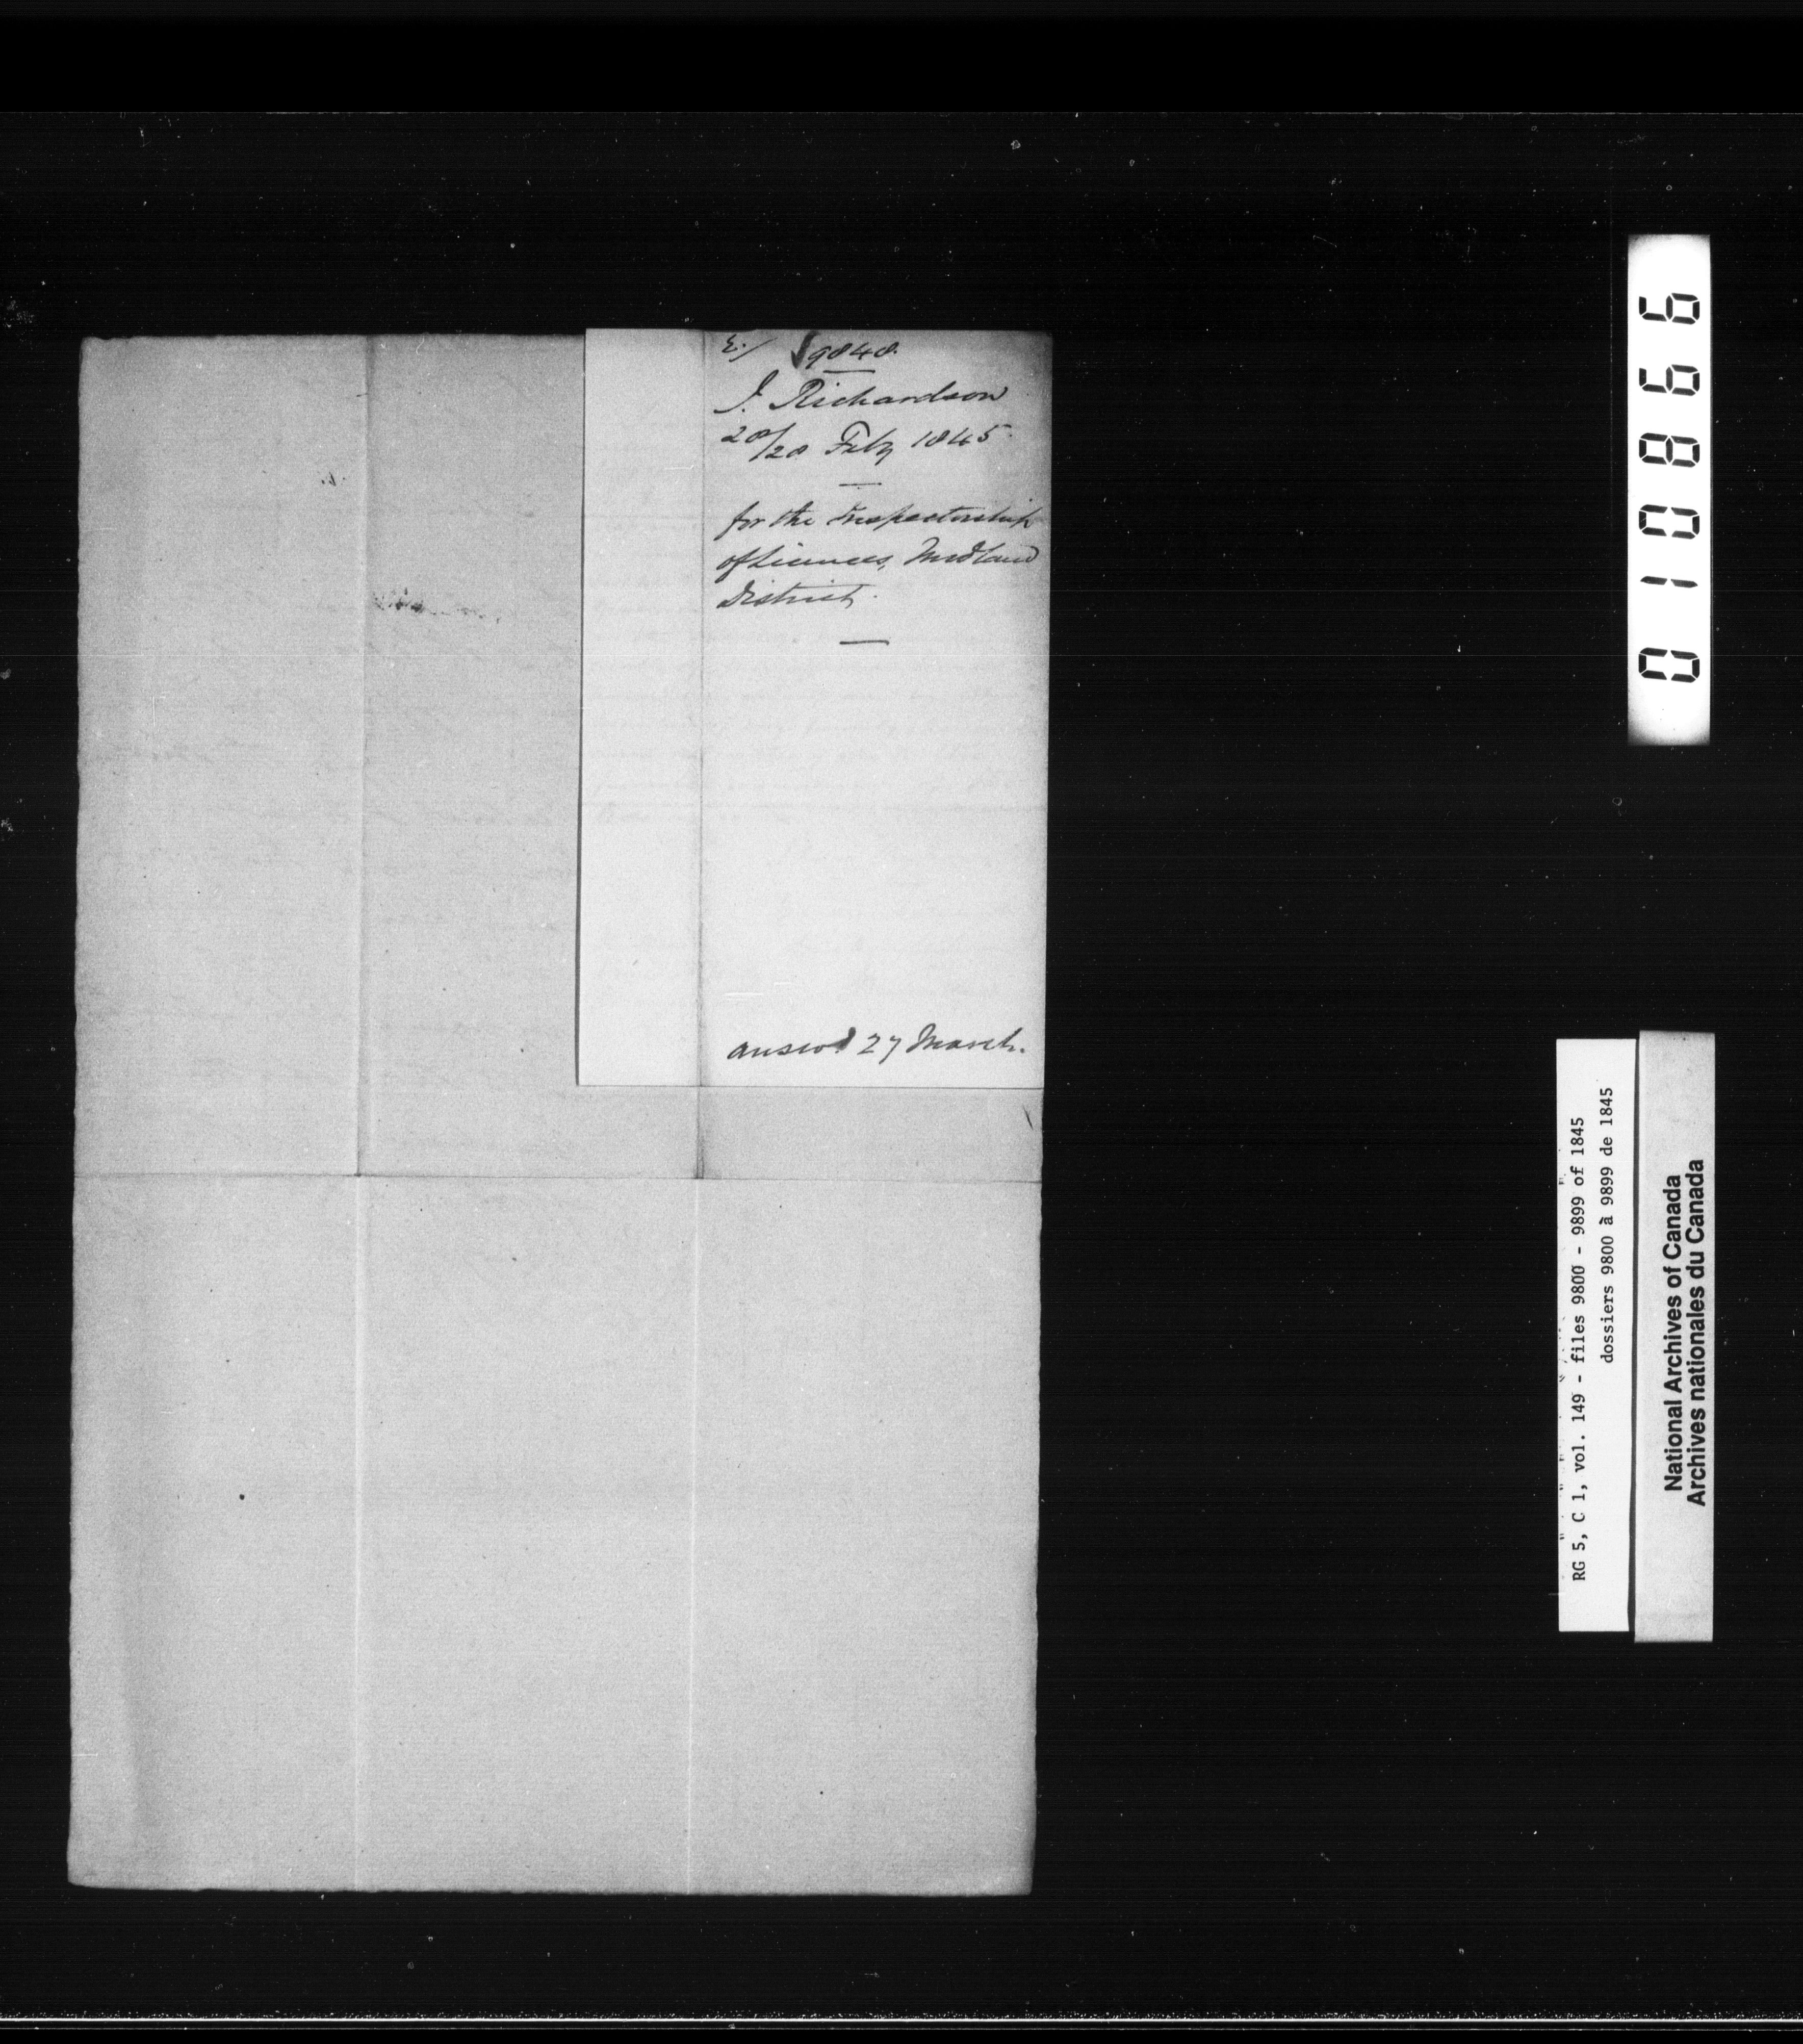 E./ 9848.
J. Richardson
20/28 Feby 1845.
for the Inspectorship
of Licences, Midland
District.
answd 27 March.
010866
RG 5, C 1, vol. 149 - files 9800 - 9899 of 1845
dossiers 9800 à 9899 de 1845
National Archives of Canada
Archives nationales du Canada